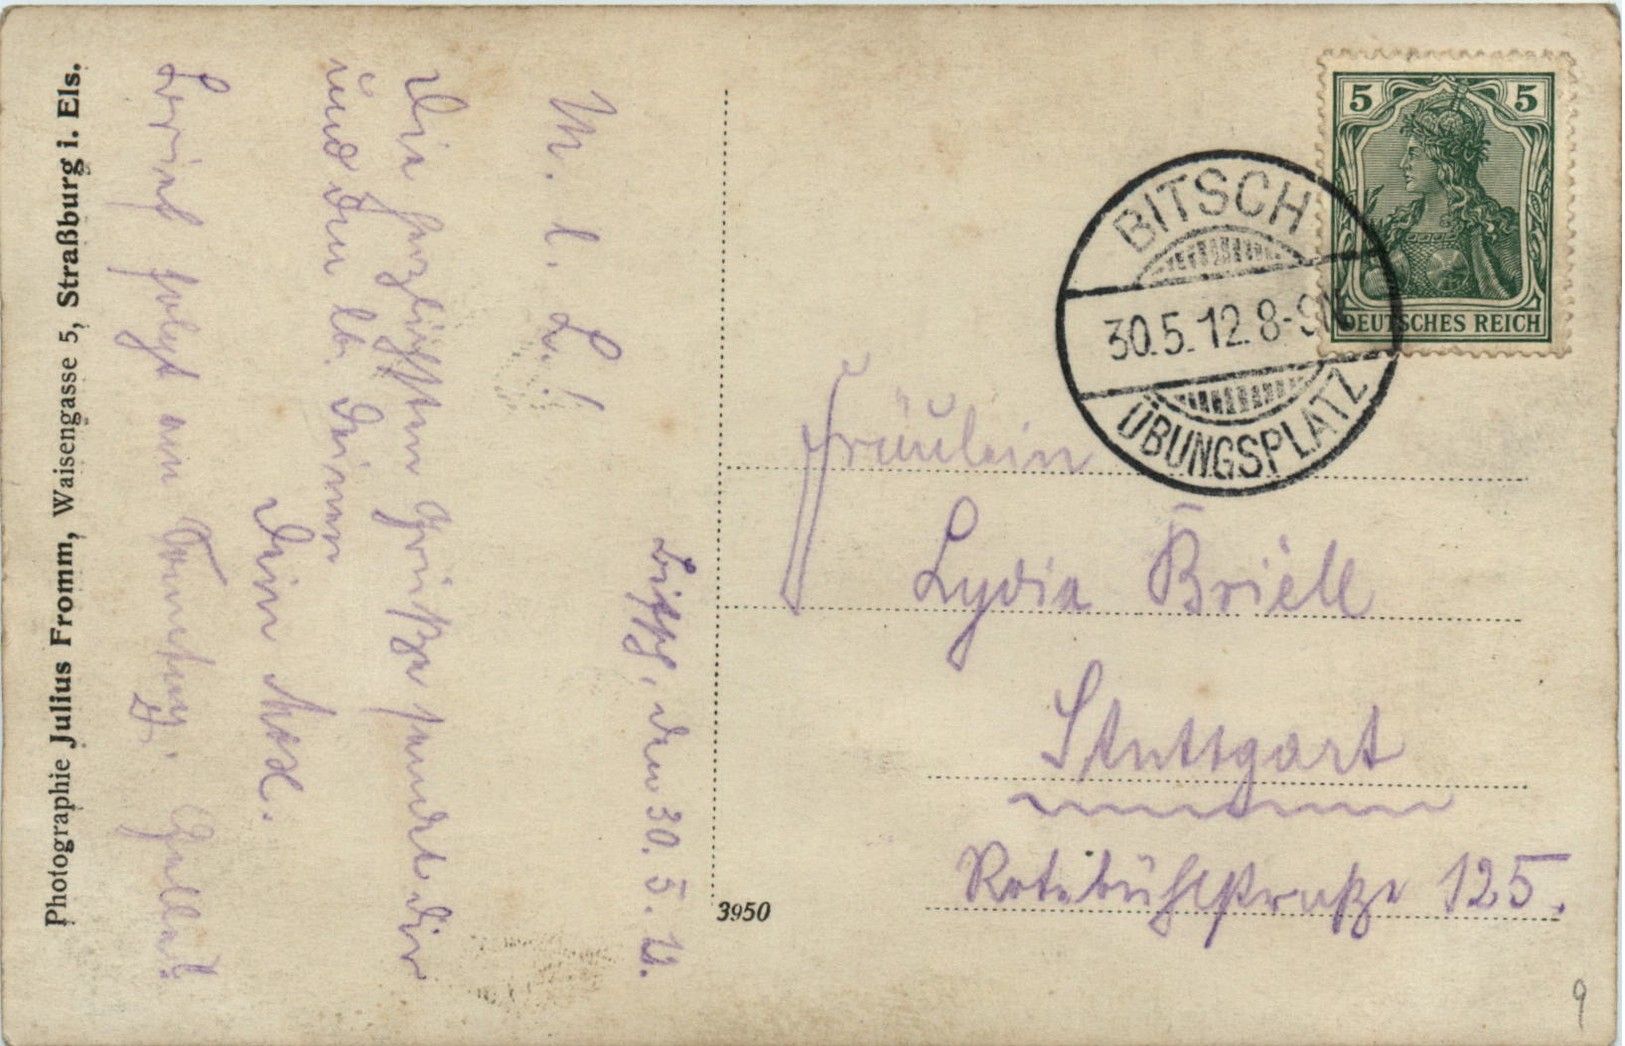 Photographie Julius Fromm, Waisengasse 5, Straßburg i. Els.
Bitsch, den 30. 5. 12.
M. l. L.!
Die herzlichsten Grüße sendet dir
und den lb. deinen
dein Max.
Brief folgt am Sonntag.
5 5
DEUTSCHES REICH
BITSCH
30.5.12.8-9N
ÜBUNGSPLATZ
Fräulein
Lydia Briell
Stuttgart
Rotebühlstraße 125.
3950
9